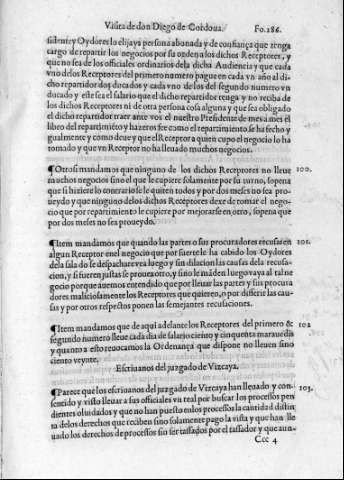 Visita de don Diego de Cordoua. Fo.186.
sidente y Oydores lo elijaya persona abonada y de confiança que tenga
cargo de repartir los negocios por su orden a los dichos Receptores, y
que no sea de los officiales ordinarios dela dicha Audiencia y que cada
vno delos Receptores del primero numero pague en cada vn año al di-
cho repartidor dos ducados y cada vno de los del segundo numero vn
ducado y este sea el salario que el dicho repartidor tenga y no reciba de
los dichos Receptores ni de otra persona cosa alguna y que sea obligado
el dicho repartidor traer ante vos el nuestro Presidente de mes a mes el
libro del repartimiẽto y hazeros fee como el repartimiento se ha fecho y
ygualmente y como deue y que el Receptor a quien cupo el negocio lo ha
tomado y que vn Receptor no ha lleuado muchos negocios.
¶Otrosi mandamos que ninguno de los dichos Receptores no lleue 100.
muchos negocios sino el que le cupiere solamente por su turno, sopena
que si hiziere lo contrario se le quiten todos y por dos meses no sea pro-
ueydo y que ninguno delos dichos Receptores dexe de tomar el nego-
cio que por repartimiento le cupiere por mejorarse en otro, sopena que
por dos meses no sea proueydo.
¶Item mandamos que quando las partes o sus procuradores recusaren 101.
algun Receptor enel negocio que por suerte le ha cabido los Oydores
dela sala do se despachare vea luego y sin dilacion las causas dela recusa-
cion, y si fueren justas se prouea otro, y sino le mãden luego vaya al tal ne
gocio porque auemos entendido que por lleuar las partes y sus procura
dores maliciosamente los Receptores que quieren, o por differir las cau-
sas y por otros respectos ponen las semejantes recusaciones.
¶Item mandamos que de aqui adelante los Receptores del primero & 102
segundo numero lleue cada dia de salario ciento y cinquenta marauedis
y quanto a esto reuocamos la Ordenança que dispone no lleuen sino
ciento veynte.
Escriuanos del juzgado de Vizcaya.
¶Parece que los escriuanos del juzgado de Vizcaya han lleuado y con- 103.
sentido y visto lleuar a sus officiales vn real por buscar los processos pen
dientes oluidados y que no han puesto enlos processos la cantidad distin
ta delos derechos que reciben sino solamente pago la vista y que han lle
uado los derechos de processos sin ser tassados por el tassador y que aun-
Ccc 4